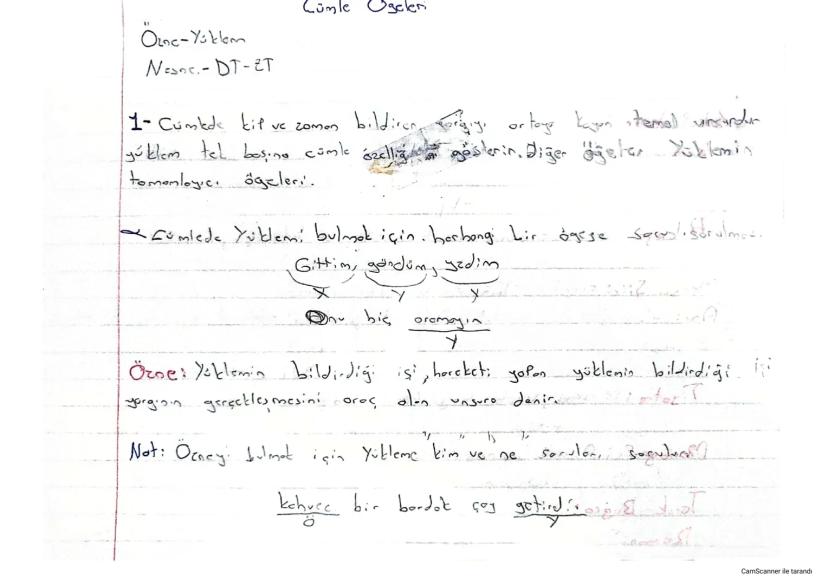 Cümle Ögeleri
Özne-Yüklem
Nesne.-DT-ZT
1- Cümlede kip ve zaman bildiren yargıyı ortaya koyan temel unsurdur
yüklem tek başına cümle özelliği gösterir. Diğer öğeler Yüklemin
tamamlayıcı ögeleri.
Cümlede Yüklemi bulmak için. herhangi bir ögeye soru sorulmaz.
Gittim, gördüm, yedim
Y Y Y
Onu hiç aramayın
Y
Özne: Yüklemin bildirdiği işi, hareketi yapan yüklemin bildirdiği işi
yargının gerçekleşmesini araç olan unsura denir.
Not: Özneyi bulmak için Yükleme "kim" ve "ne" soruları sorulur
kahveci bir bardak çay getirdi.
Ö Y
CamScanner ile tarandı